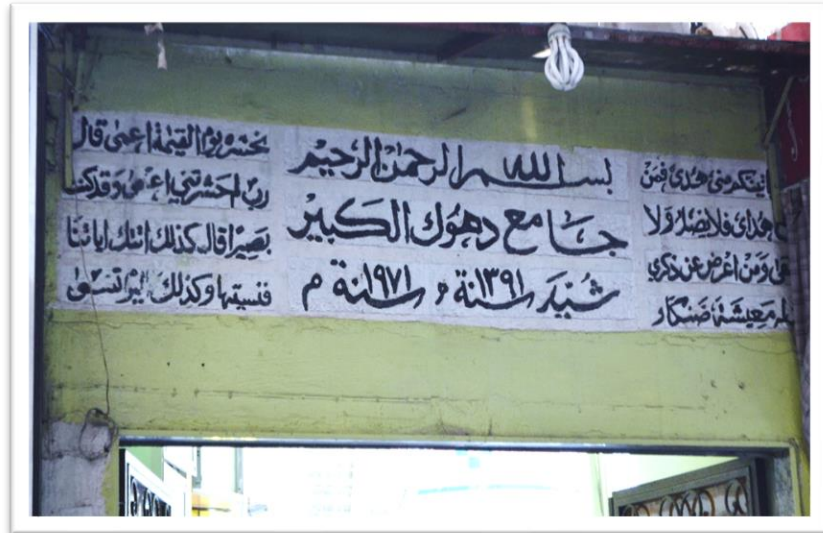 مني هدى فمن
هداي فلا يضل ولا
ومن اعرض عن ذكري
معيشة ضنكا و
بسم الله الرحمن الرحيم
جامع دهوك الكبير
شُيّدَ سنة ١٣٩١ ه سنة ١٩٧١ م
نحشره يوم القيمة اعمى قال
ربّ احشرتني اعمى وقد كنت
بصيرا قال كذلك اتتك اياتنا
فنسيتها وكذلك تنسى